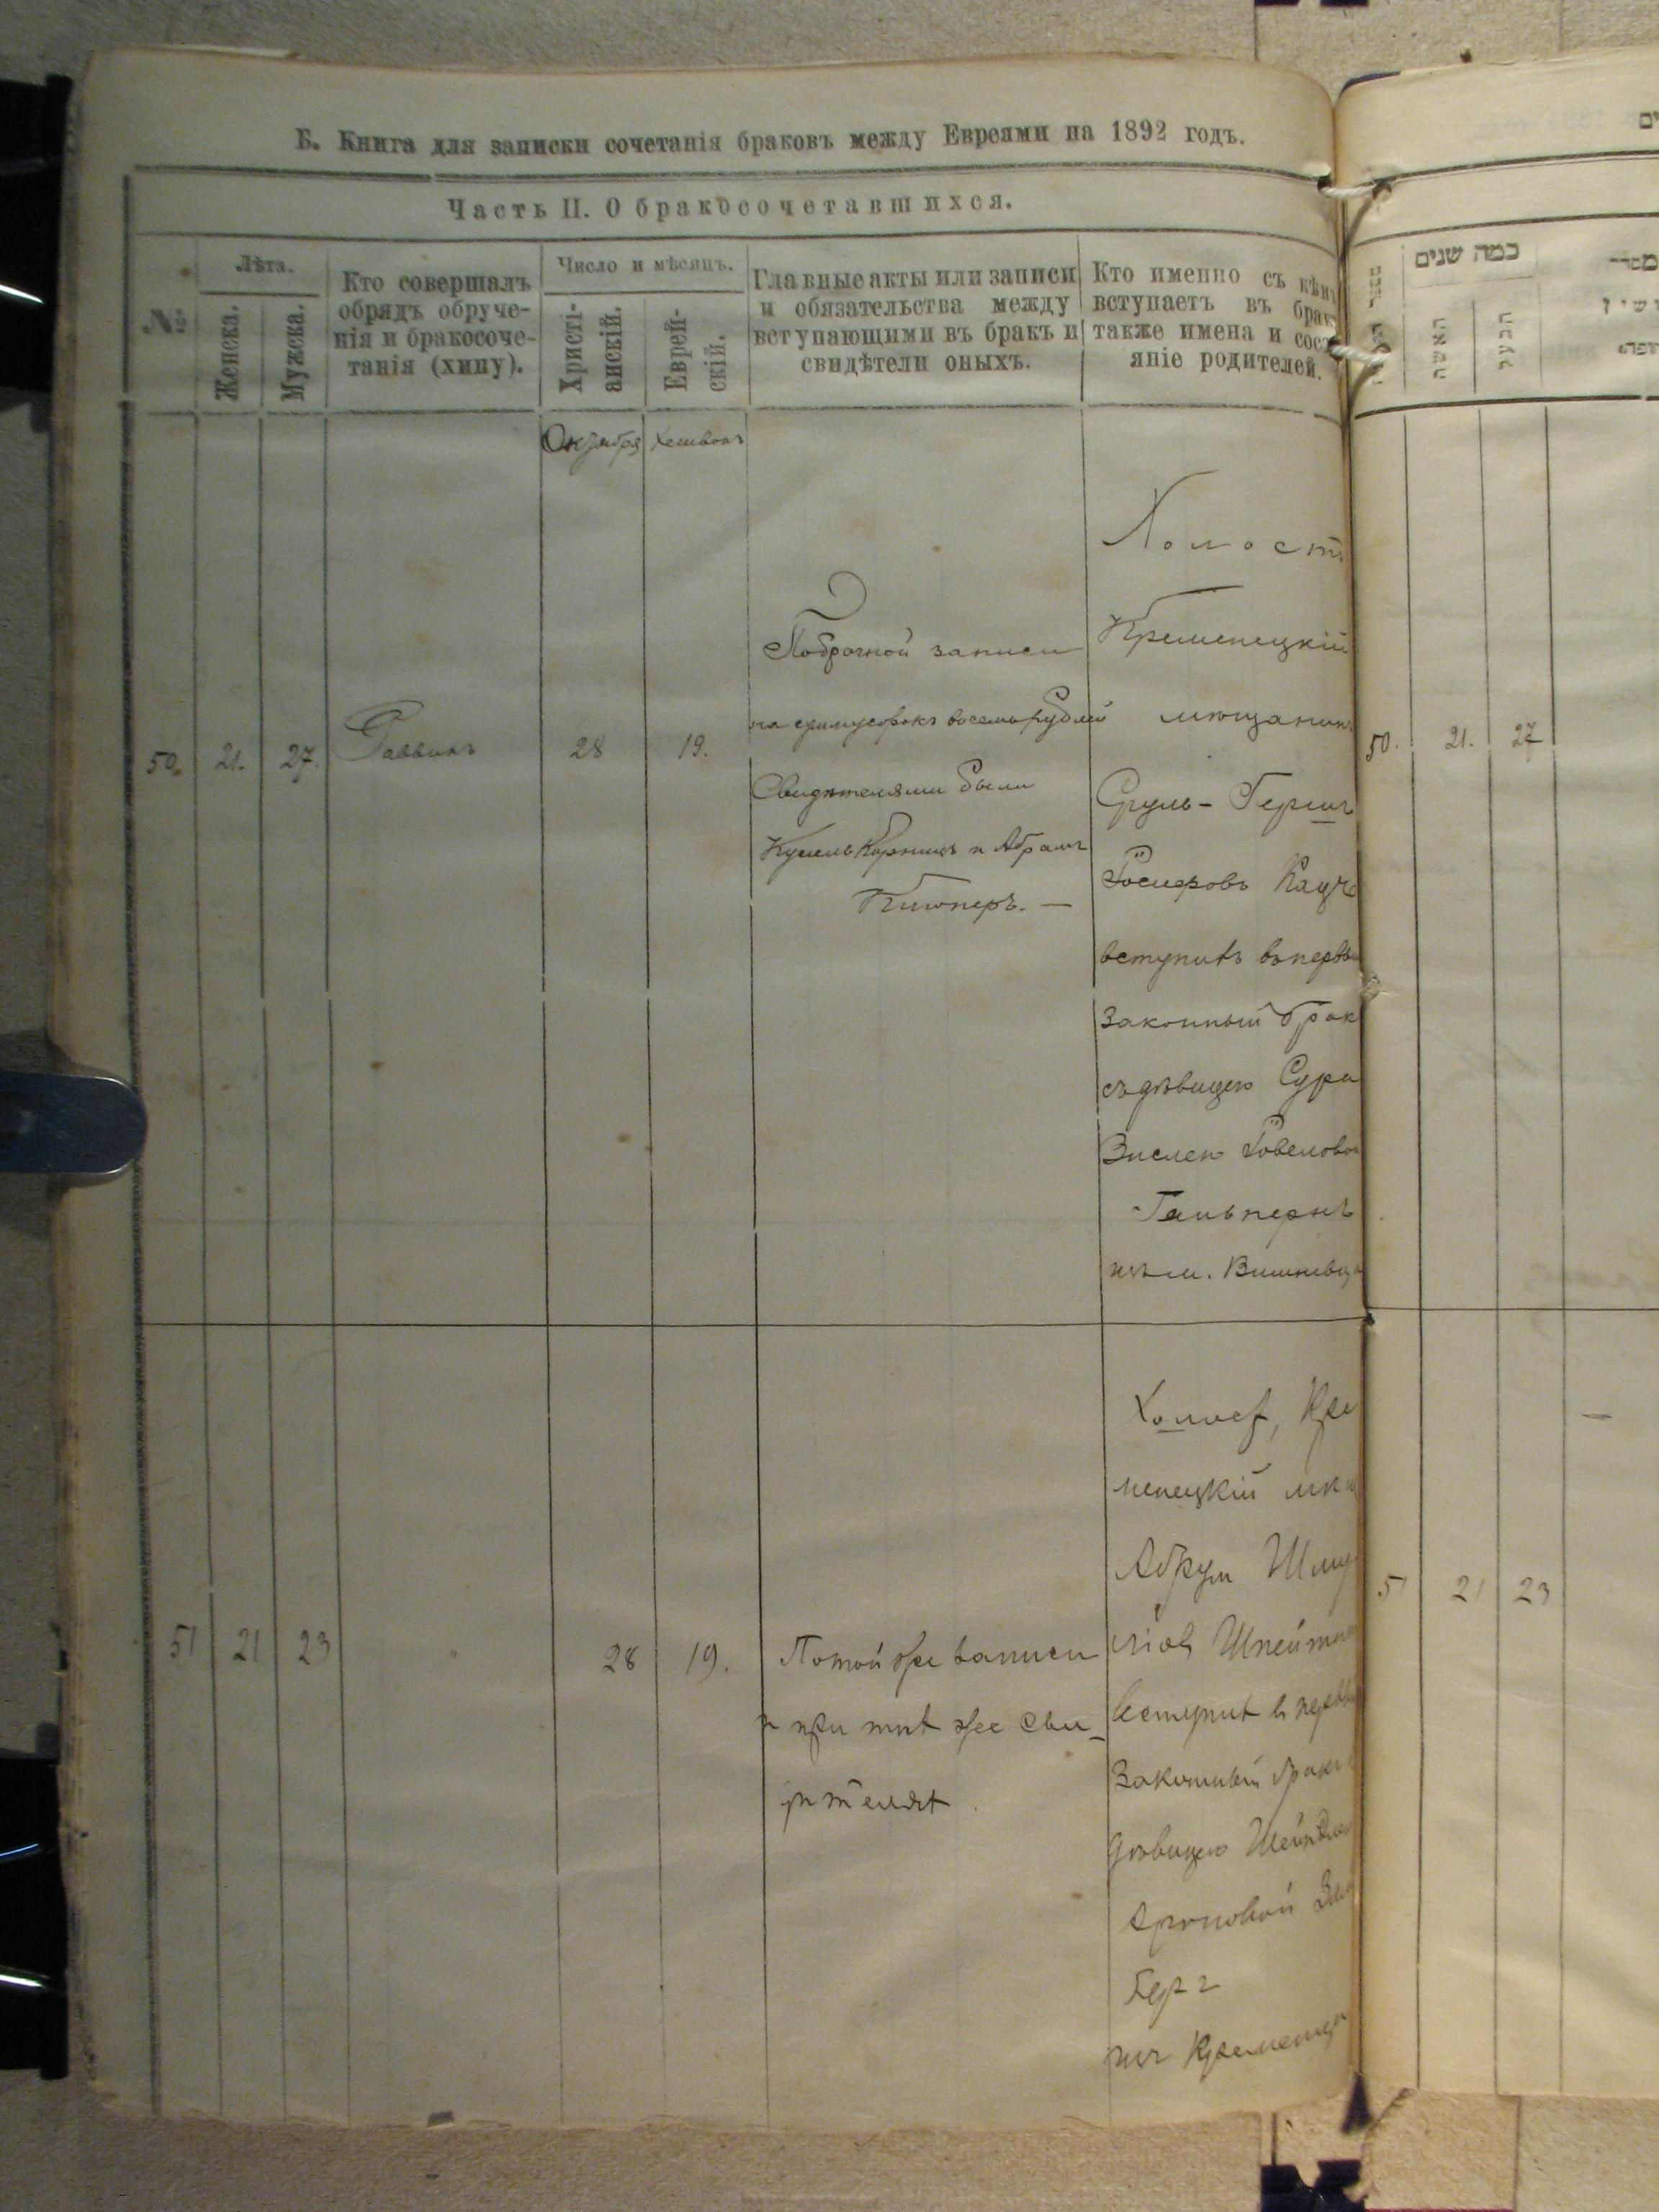 Б. Книга для записки сочетанія браковъ между Евреями на 1892 годъ.
Часть II. О бракосочетавшихся.
№
Лѣта.
Женска.
Мужска.
Кто совершалъ
обрядъ обруче-
нія и бракосоче-
танія (хипу).
Число и мѣсяцъ.
Христі-
анскій.
Еврей-
скій.
Главные акты или записи
и обязательства между
вступающими въ бракъ и
свидѣтели оныхъ.
Кто именно съ кѣмъ
вступаетъ въ брак
также имена и сост
яніе родителей.
Октября
Хешвонъ
50. 21. 27. Раввинъ 28 19.
Побрачной записи
рублей
Свидѣтелями были
и Абрамъ
Холостъ
Кременецкій
мѣщанинъ
Сруль-Герш
Іосифовъ Кацъ
вступитъ въ первы
законный брак
съ дѣвицею Сура
Зислею
Гальпернъ
изъ м. Вишневца
51 21 23 28 19.
По той же записи
и при тѣх же сви-
дѣтелях
Холост, Кре
менецкій
вступит в первы
законный бракъ
дѣвицею
Ароновой
берг
изъ Кременца
כמה שנים
האשה
הבעל
50. 21. 27
51 21 23